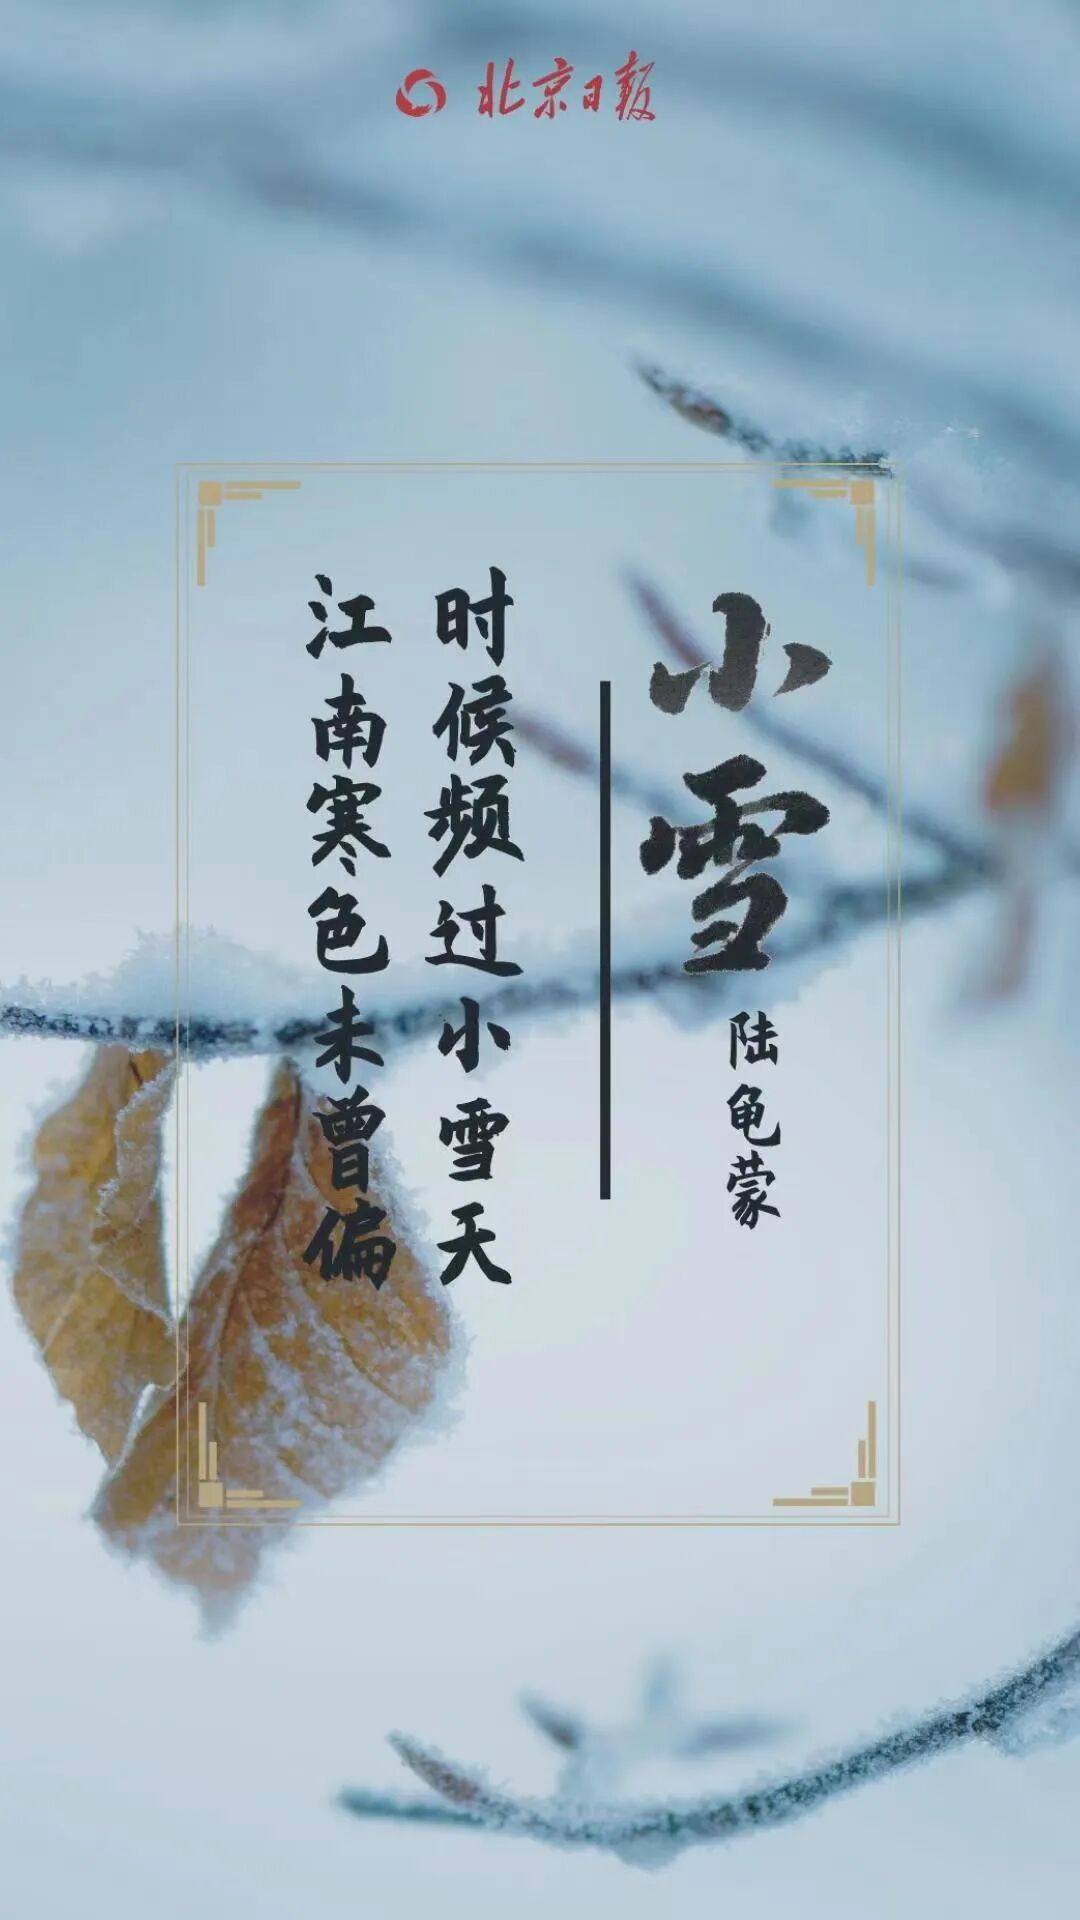 北京日报
小雪
陆龟蒙
时候频过小雪天
江南寒色未曾偏